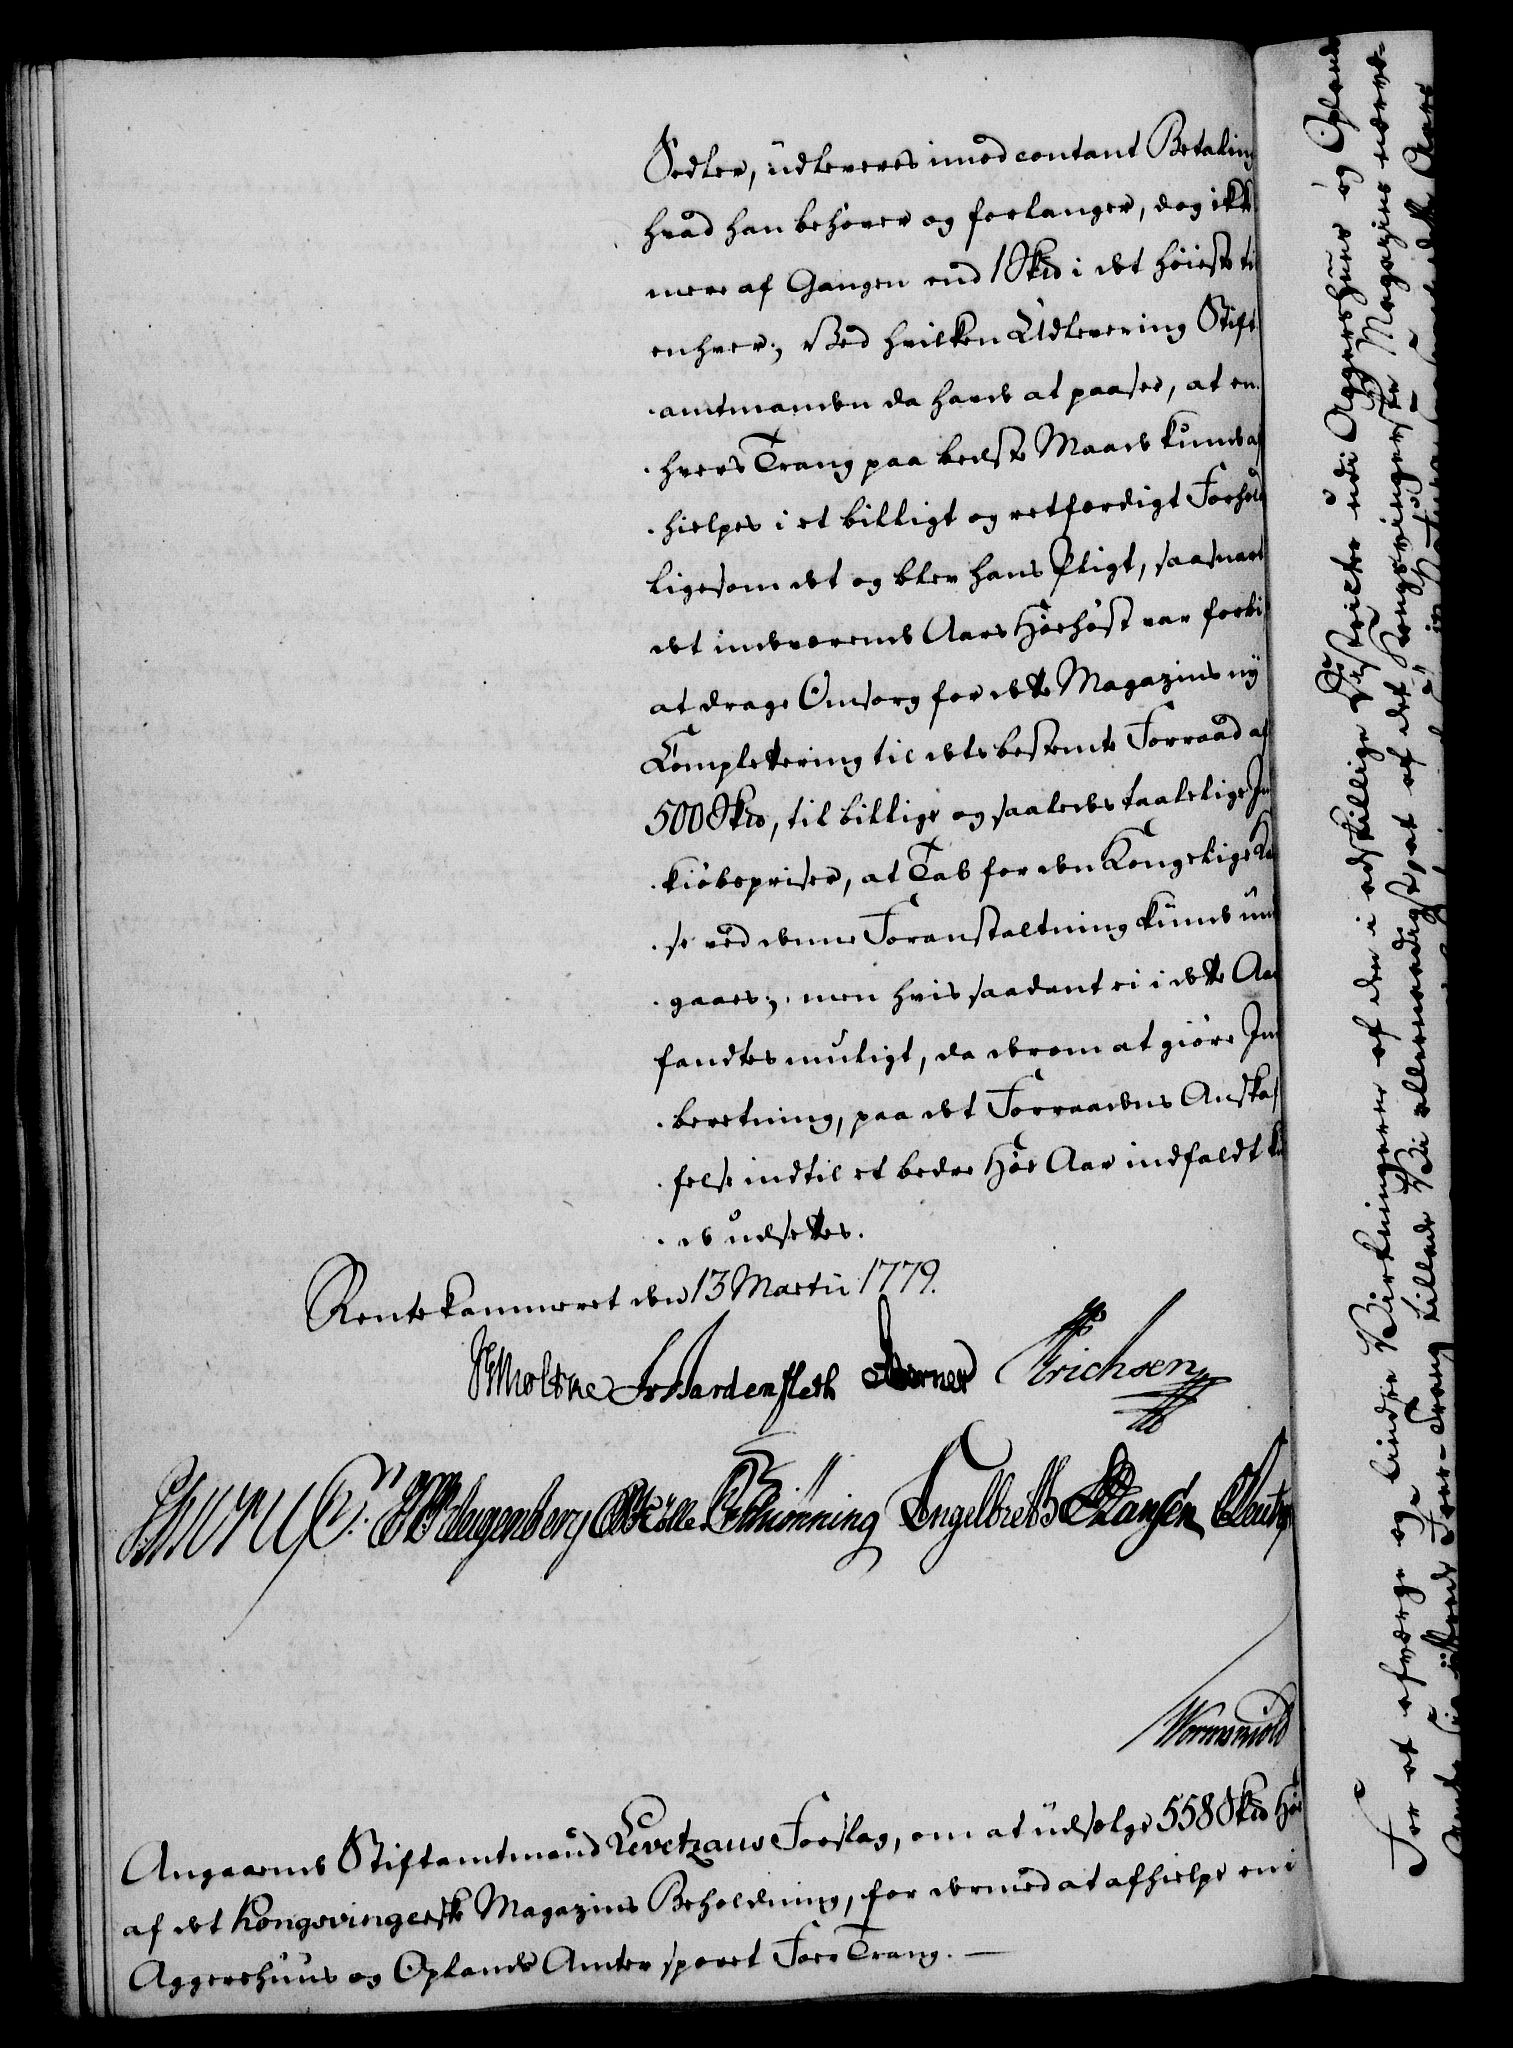 Sedler, üdleveres imod contant Betaling
hvad han behøver og forlanger, dog ikke
mere af Gangen end 1 Skd i det høieste til
enhver; Ved hvilken Udlevering Stift-
amtmanden da havde at paasee, at en-
hvers Trang paa bedste Maade kunde af-
hielpes i et billigt og retfærdigt Forhold
ligesom det og blev hans Pligt, saasnart
det indeværende Aars Høehøst var forbi
at drage Omsorg for dette Magazins ny
Completering til dets bestemte Forraad af
500 Skd, til billige og saaledes taalelige Ind-
kiøbspriser, at Tab for den Kongelige Kas-
se ved denne Foranstaltning kunde und-
gaaes; men hvis saadant ei i dette Aar
fandtes muligt, da derom at giøre Ind-
beretning, paa det Forraadens Anskaf-
felse indtil et bedre Høe Aar indfaldt kun-
de udsettes.
Rentekammeret den 13 Martii 1779.
Moltke Hardenfleth Berner Erichsen
Müller Schiønning Engelbreth Hansen
Wormskiold
Angaaende Stiftamtmand Levetzaus Forslag, om at üdsælge 558 Skd Høe
af det Kongsvingerske Magazins Beholdning, for dermed at afhielpe en i
Aggershuus og Oplands Amter sporet Foer Trang. —
For at afværge og lindre Virkningerne af den i adskillige Distrikter udi Aggershuus og Oplands
Amter sig yttrede Foer-Trang tillade Vi allernaadigst, at af det Kongsvingerske Magazins nærvæ-